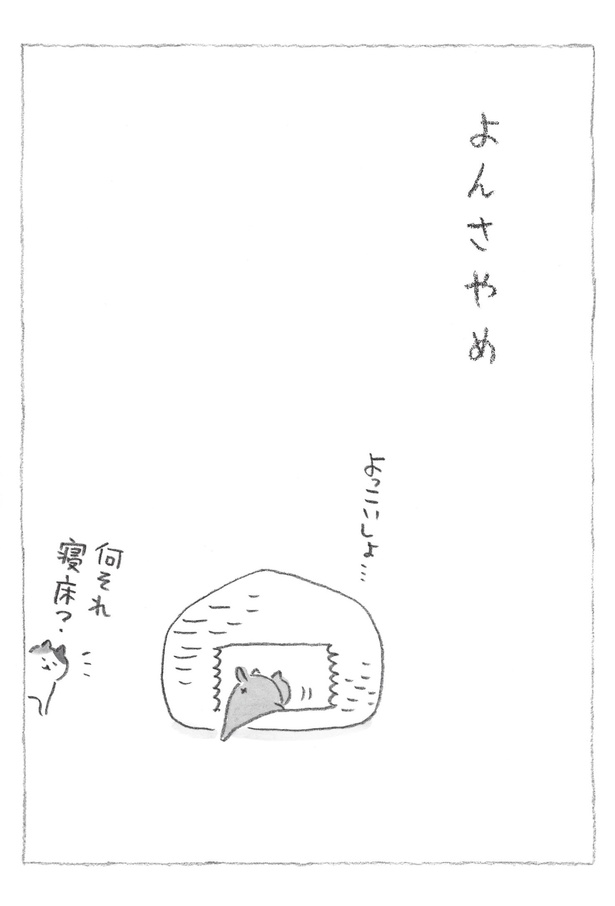 よんさやめ
よっこいしょ…
何それ
寝床？